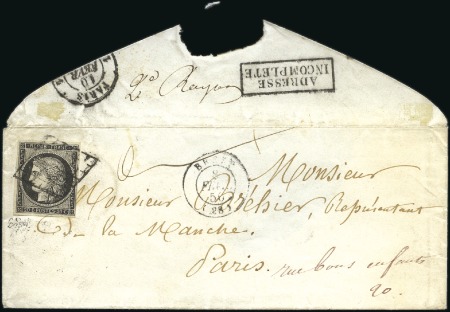 PARIS
10
FEVR
2d Rayon
ADRESSE
INCOMPLETE
à
Monsieur
Monsieur Réhier, Représentant
de la Manche,
Paris. rue bons enfants
20.